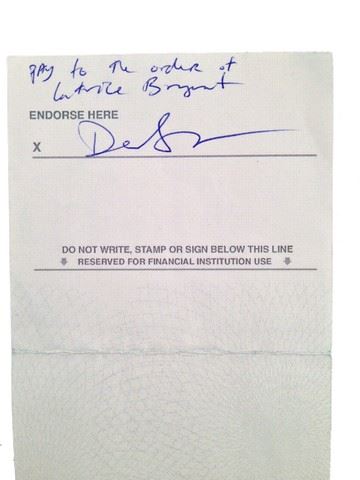 pay to the order of
Latrice Bryant
ENDORSE HERE
X
DO NOT WRITE, STAMP OR SIGN BELOW THIS LINE
RESERVED FOR FINANCIAL INSTITUTION USE